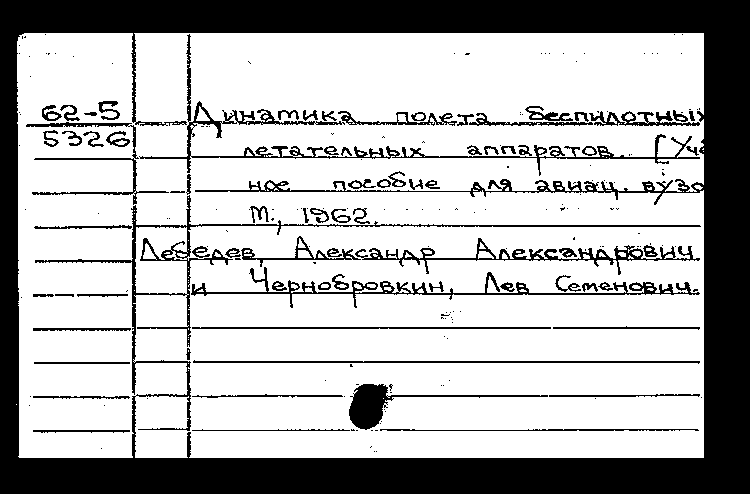 62-5 Динамика полета беспилотных
5326 летательных аппаратов. [Учеб
ное пособие для авиац. вузо
М., 1962.
Лебедев, Александр Александрович
и Чернобровкин, Лев Семенович.